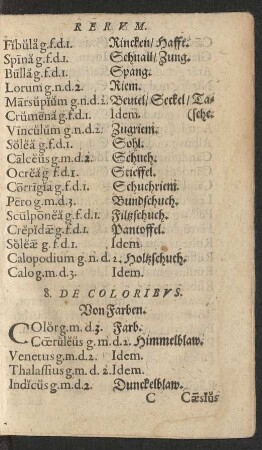 RERVM.
Fībŭlă g.f.d.1. Rincken/Hafft.
Spīnă g.f.d.1. Schnall/Zung.
Bŭllă g.f.d.1. Spang.
Lorum g.n.d.2. Riem.
Mārsūpĭŭm g.n.d.2. Beutel/Seckel/Ta-
Crŭmēnă g.f.d.1. Idem. (sche.
Vīncŭlŭm g.n.d.2. Zugriem.
Sŏlĕă g.f.d.1. Sohl.
Cālcĕŭs g.m.d.2. Schuch.
Ocrĕă g.f.d.1. Stieffel.
Cōrrĭgĭă g.f.d.1. Schuchriem.
Pēro g.m.d.3. Bundschuch.
Scŭlpōnĕă g.f.d.1. Filtzschuch.
Crĕpĭdæ g.f.d.1. Pantoffel.
Sŏlĕæ g.f.d.1. Idem.
Calopodium g.n.d.2. Holtzschuch.
Calo g.m.d.3. Idem.
8. DE COLORIBVS.
Von Farben.
COlŏr g.m.d.3. Farb.
Cœrulĕŭs g.m.d.2. Himmelblaw.
Venetus g.m.d.2. Idem.
Thalassius g.m.d.2. Idem.
Indĭcŭs g.m.d.2. Dunckelblaw.
C Cæsĭŭs